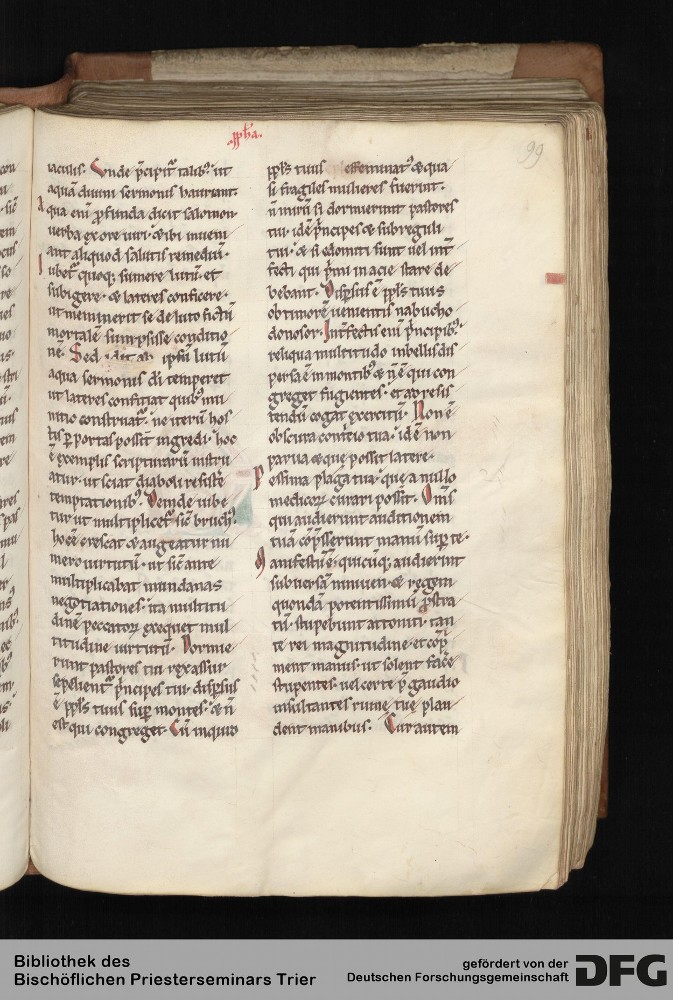 99
iaculis. Unde p̄cipit᷑ talib᷒. ut
aquā diuini sermonis hauriant.
Aqua eni᷑ ꝓfunda dicit salomon
uerba ex ore uiri. & ibi inueni
aut aliquod salutis remediū.
Iubet᷑ quoq; sumere lutū. et
subigere. & lateres conficere.
ut meminerit se de luto fictū
mortalē sumpsisse conditio
nē. Sed ipsū lutū
aqua sermonis dī temperet
ut lateres conficiat quib᷒ mu
nitio construat᷑. ne iterū hos
tis ꝑ portas possit ingredi. hoc
ē exemplis scripturarū instru
atur. ut sciat diaboli resistē
temptationib᷒. Deinde iube
tur ut multiplicet᷑ sic̄ bruch᷒.
hoc ē crescat & augeatur nu
mero uirtutū. ut sic̄ ante
multiplicabat mundanas
negotiationes. ita multitu
dinē peccatoꝝ exequet mul
titudine uirtutū. Dormie
runt pastores tui rex assur
sepelient᷑ p̄ncipes tui. disꝑsus
ē ppl̄s tuus suꝑ montes. & n̄
est qui congreget. Cū inquid
ppl̄s tuus effeminat᷒ & qua
si fragiles mulieres fuerint.
n̄ mirū si dormierint pastores
tui. idē p̄ncipes & subreguli
tui. & si edomiti sunt uel int᷑
fecti qui p̄mi in acie stare de
bebant. Disꝑsus ē ppl̄s tuus
ob timorē uenientis nabucho
donosor. Int᷑fectis eni᷑ p̄ncipib᷒.
reliqua multitudo inbellis dis
persa ē in montib᷒ & n̄ ē qui con
greget fugientes. et ad resis
tendū cogat exercitū. Non ē
obscura cont᷑icio tua. idē non
parua & que possit latere.
Pessima plaga tua. que a nullo
medicoꝝ curari possit. Om̄s
qui audierunt auditionem
tuā cōp̄sserunt manū suꝑ te.
Manifestū ē. quicūq; audierint
subuersā niniuen. & regem
quondā potentissimū ꝓstra
tū. stupebunt attoniti. tan
te rei magnitudine. et cōp̄
ment manus. ut solent facē
stupentes. uel certe p̄ gaudio
insultantes ruine tue plau
dent manibus. Cur autem
Bibliothek des
Bischöflichen Priesterseminars Trier
gefördert von der
Deutschen Forschungsgemeinschaft
DFG